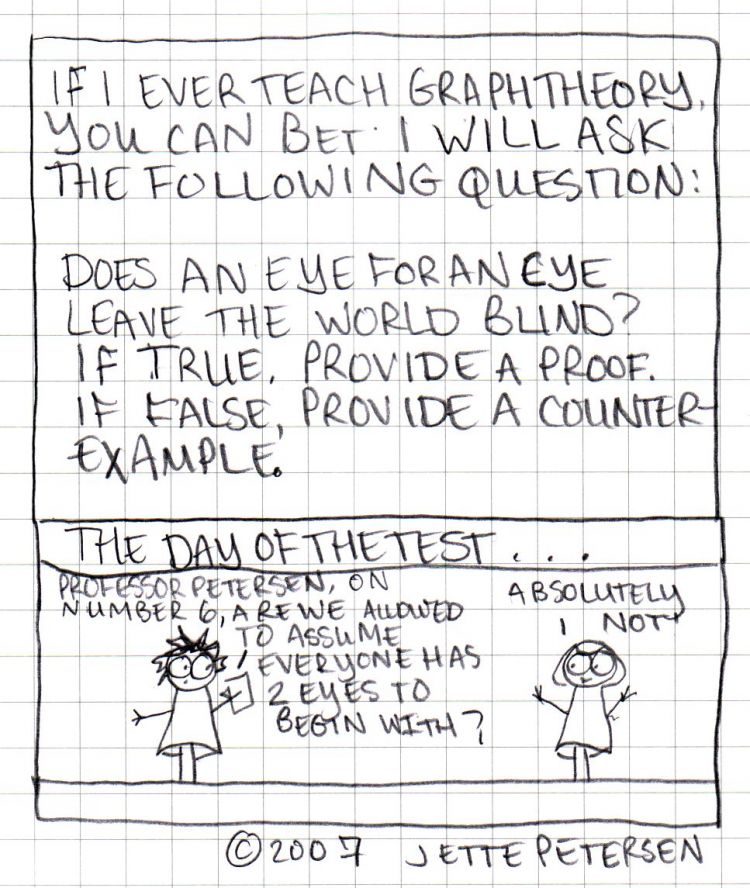 IF I EVER TEACH GRAPH THEORY,
YOU CAN BET I WILL ASK
THE FOLLOWING QUESTION:
DOES AN EYE FOR AN EYE
LEAVE THE WORLD BLIND?
IF TRUE, PROVIDE A PROOF.
IF FALSE, PROVIDE A COUNTER-
EXAMPLE.
THE DAY OF THE TEST . . .
PROFESSOR PETERSEN, ON
NUMBER 6, ARE WE ALLOWED
TO ASSUME
EVERYONE HAS
2 EYES TO
BEGIN WITH?
ABSOLUTELY
NOT
© 2007 JETTE PETERSEN